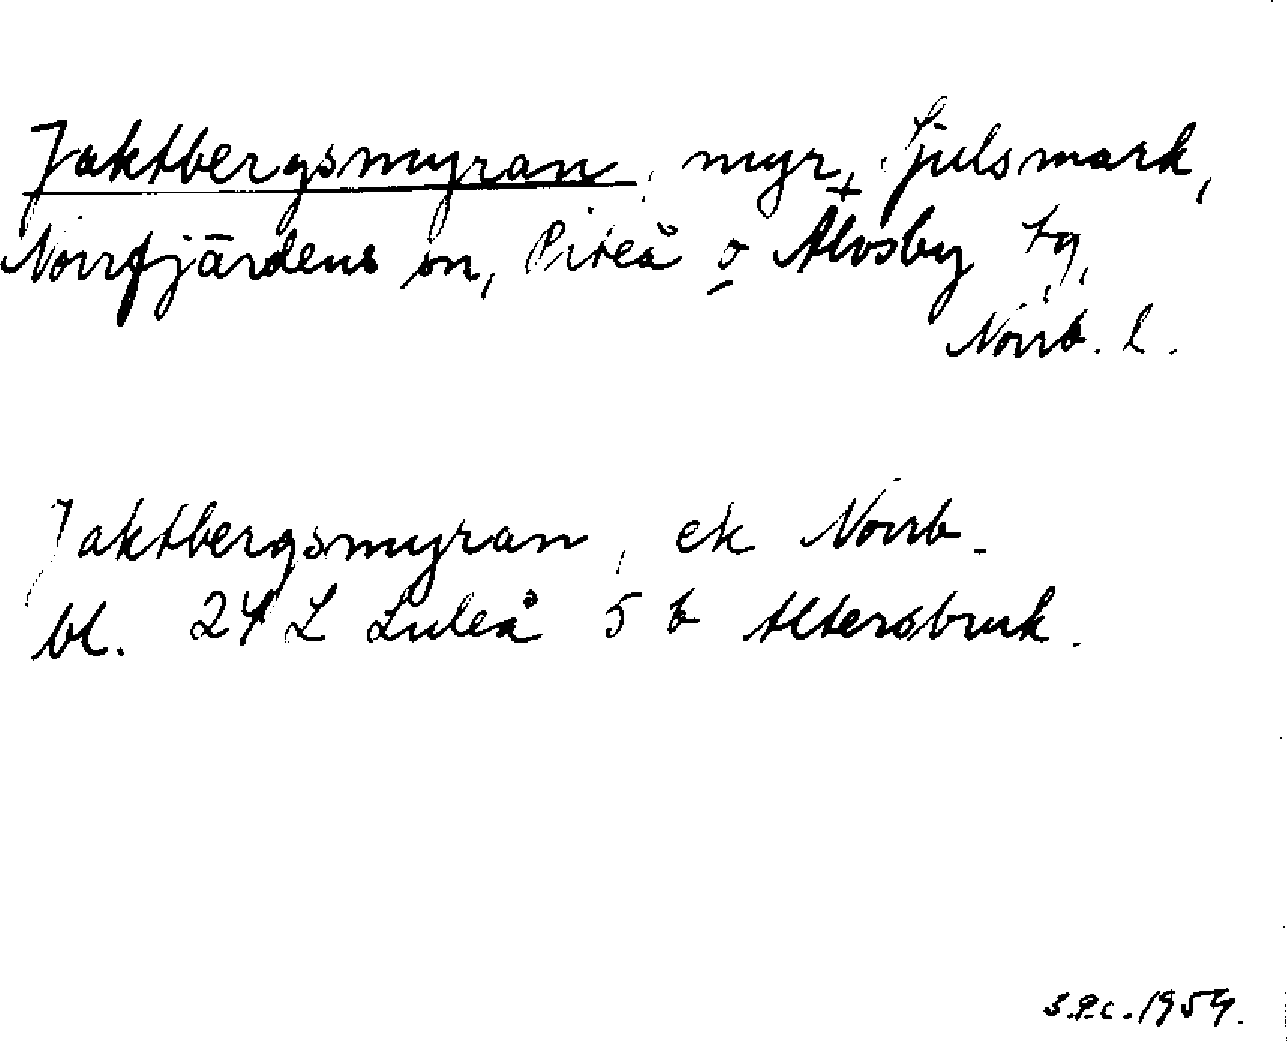 Jaktbergsmyran, myr, Sjulsmark,
Norrfjärdens sn, Piteå o Älvsby tg,
Norrb. l.
Jaktbergsmyran, ek Norrb.
bl. 24 L Luleå 5 b Altersbruk.
1959.